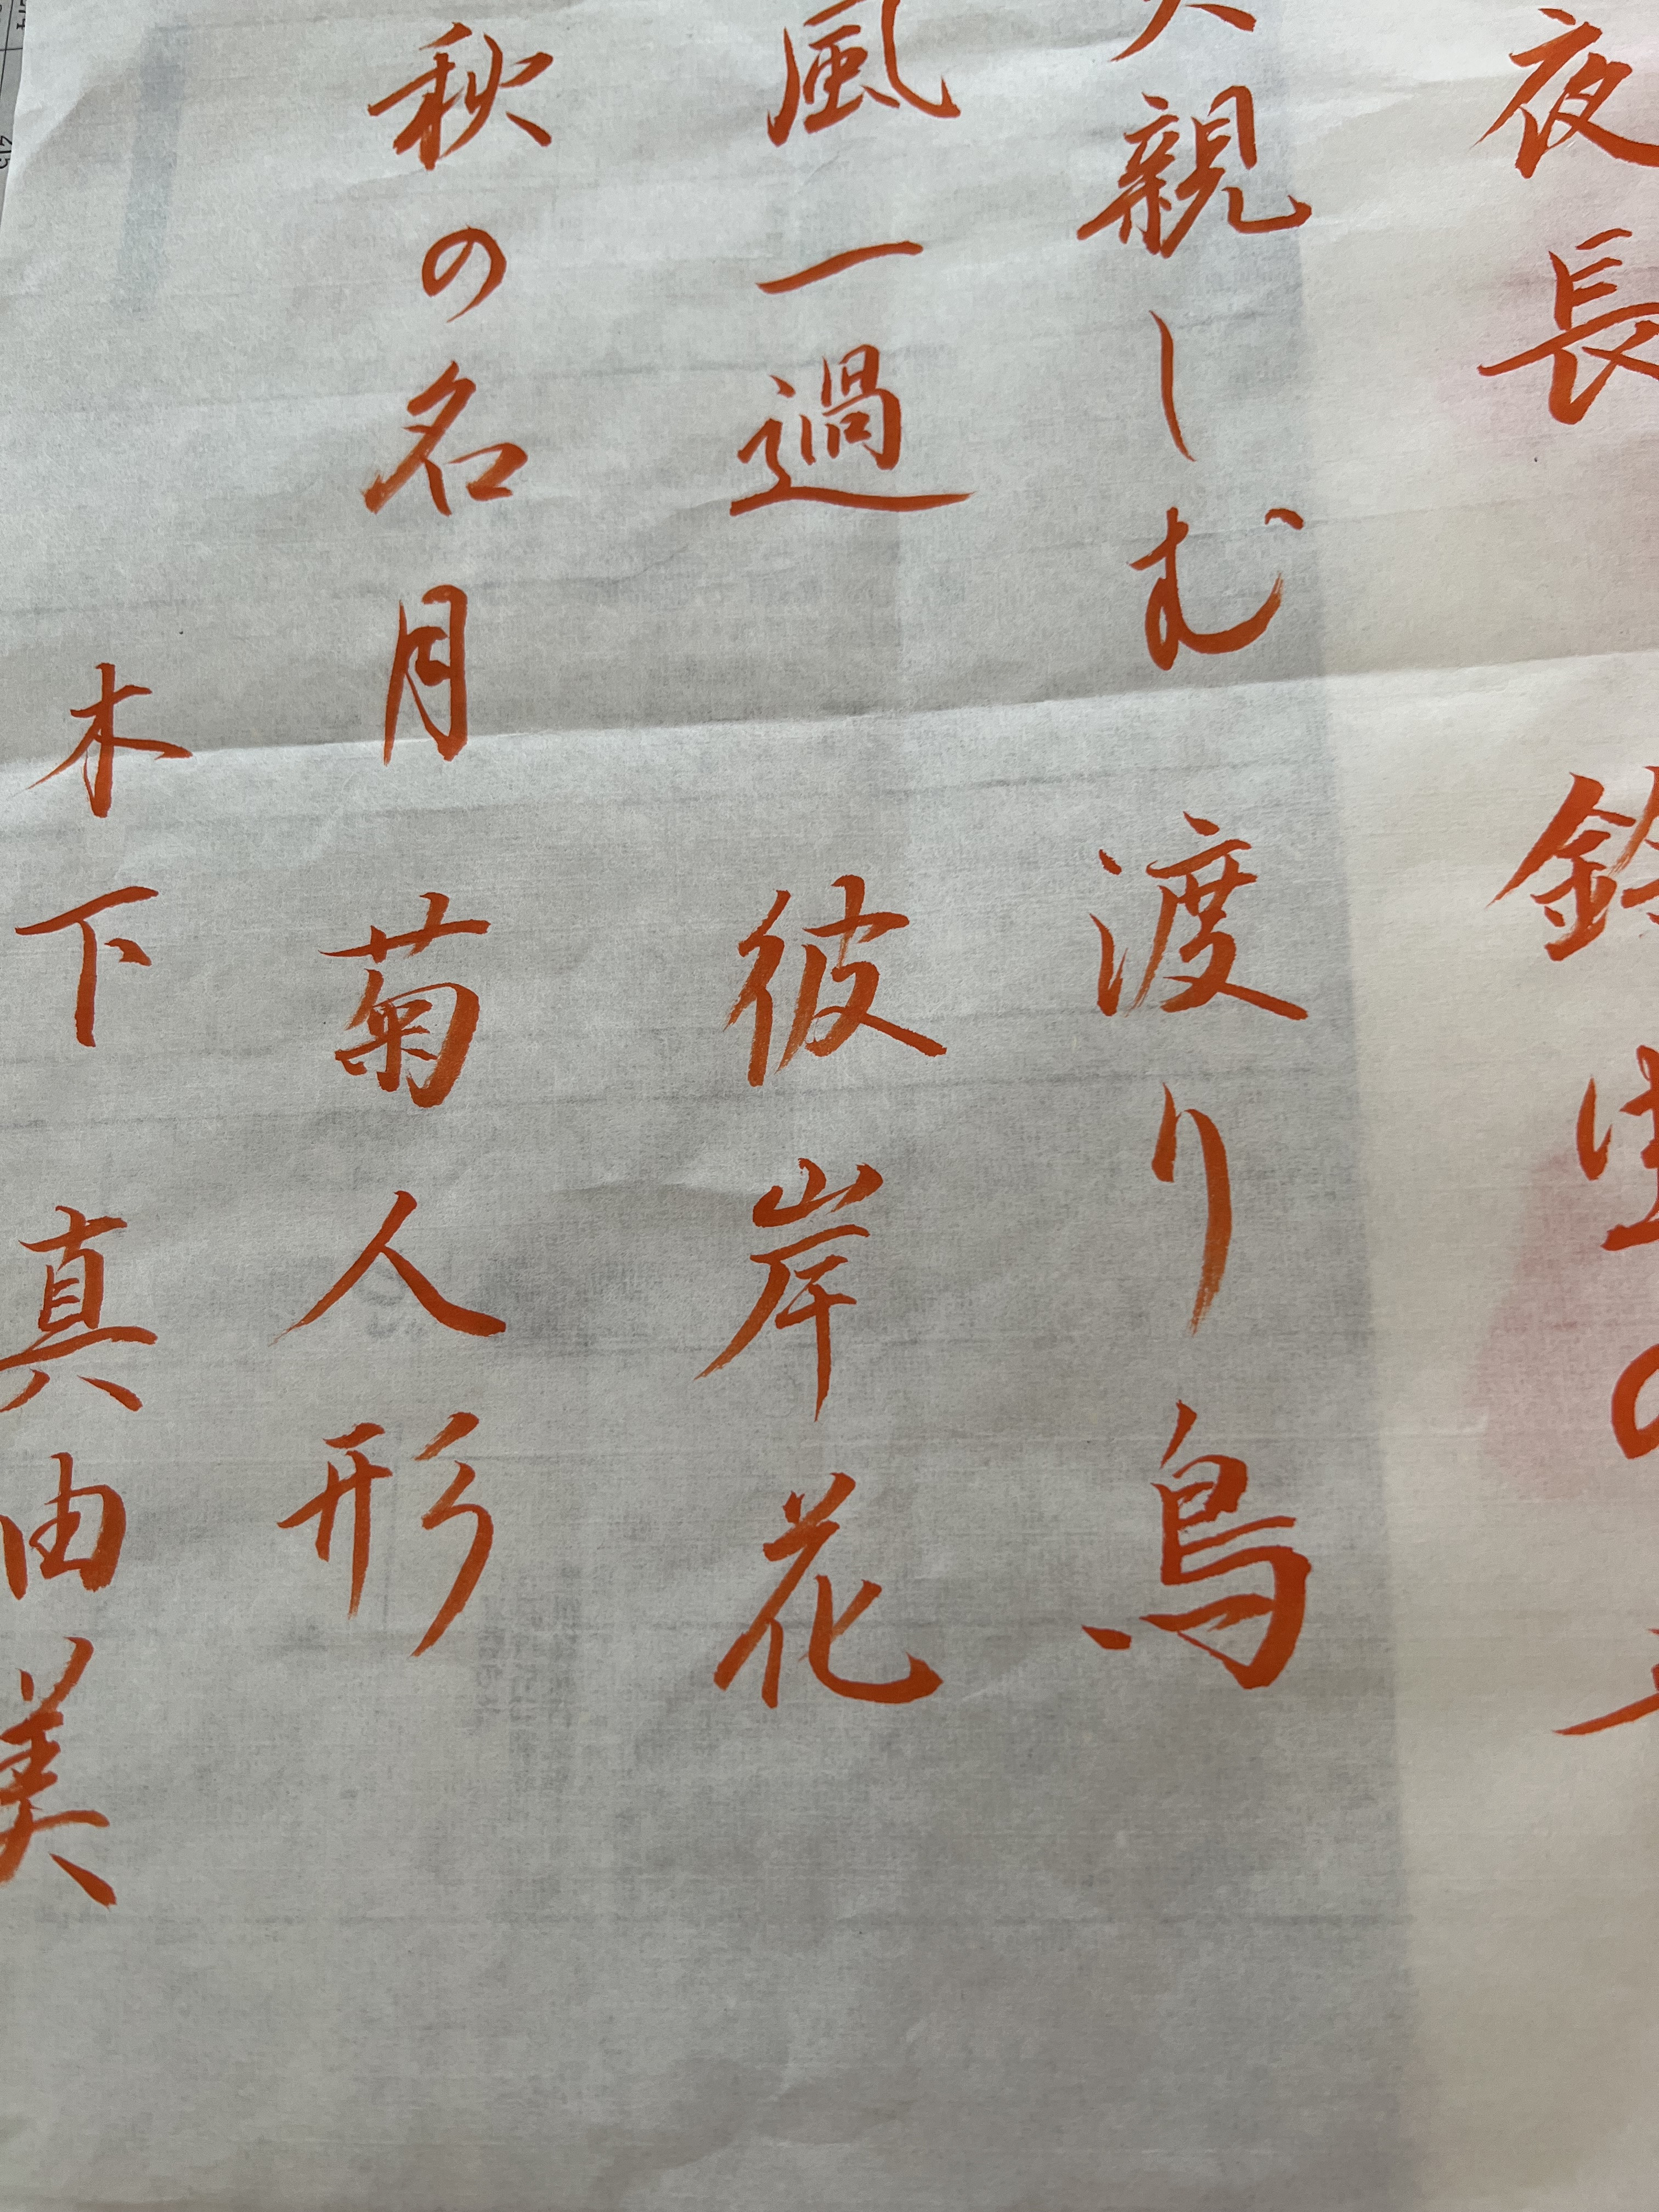 夜長 鈴虫の
親しむ 渡り鳥
風一過 彼岸花
秋の名月 菊人形
木下 真由美